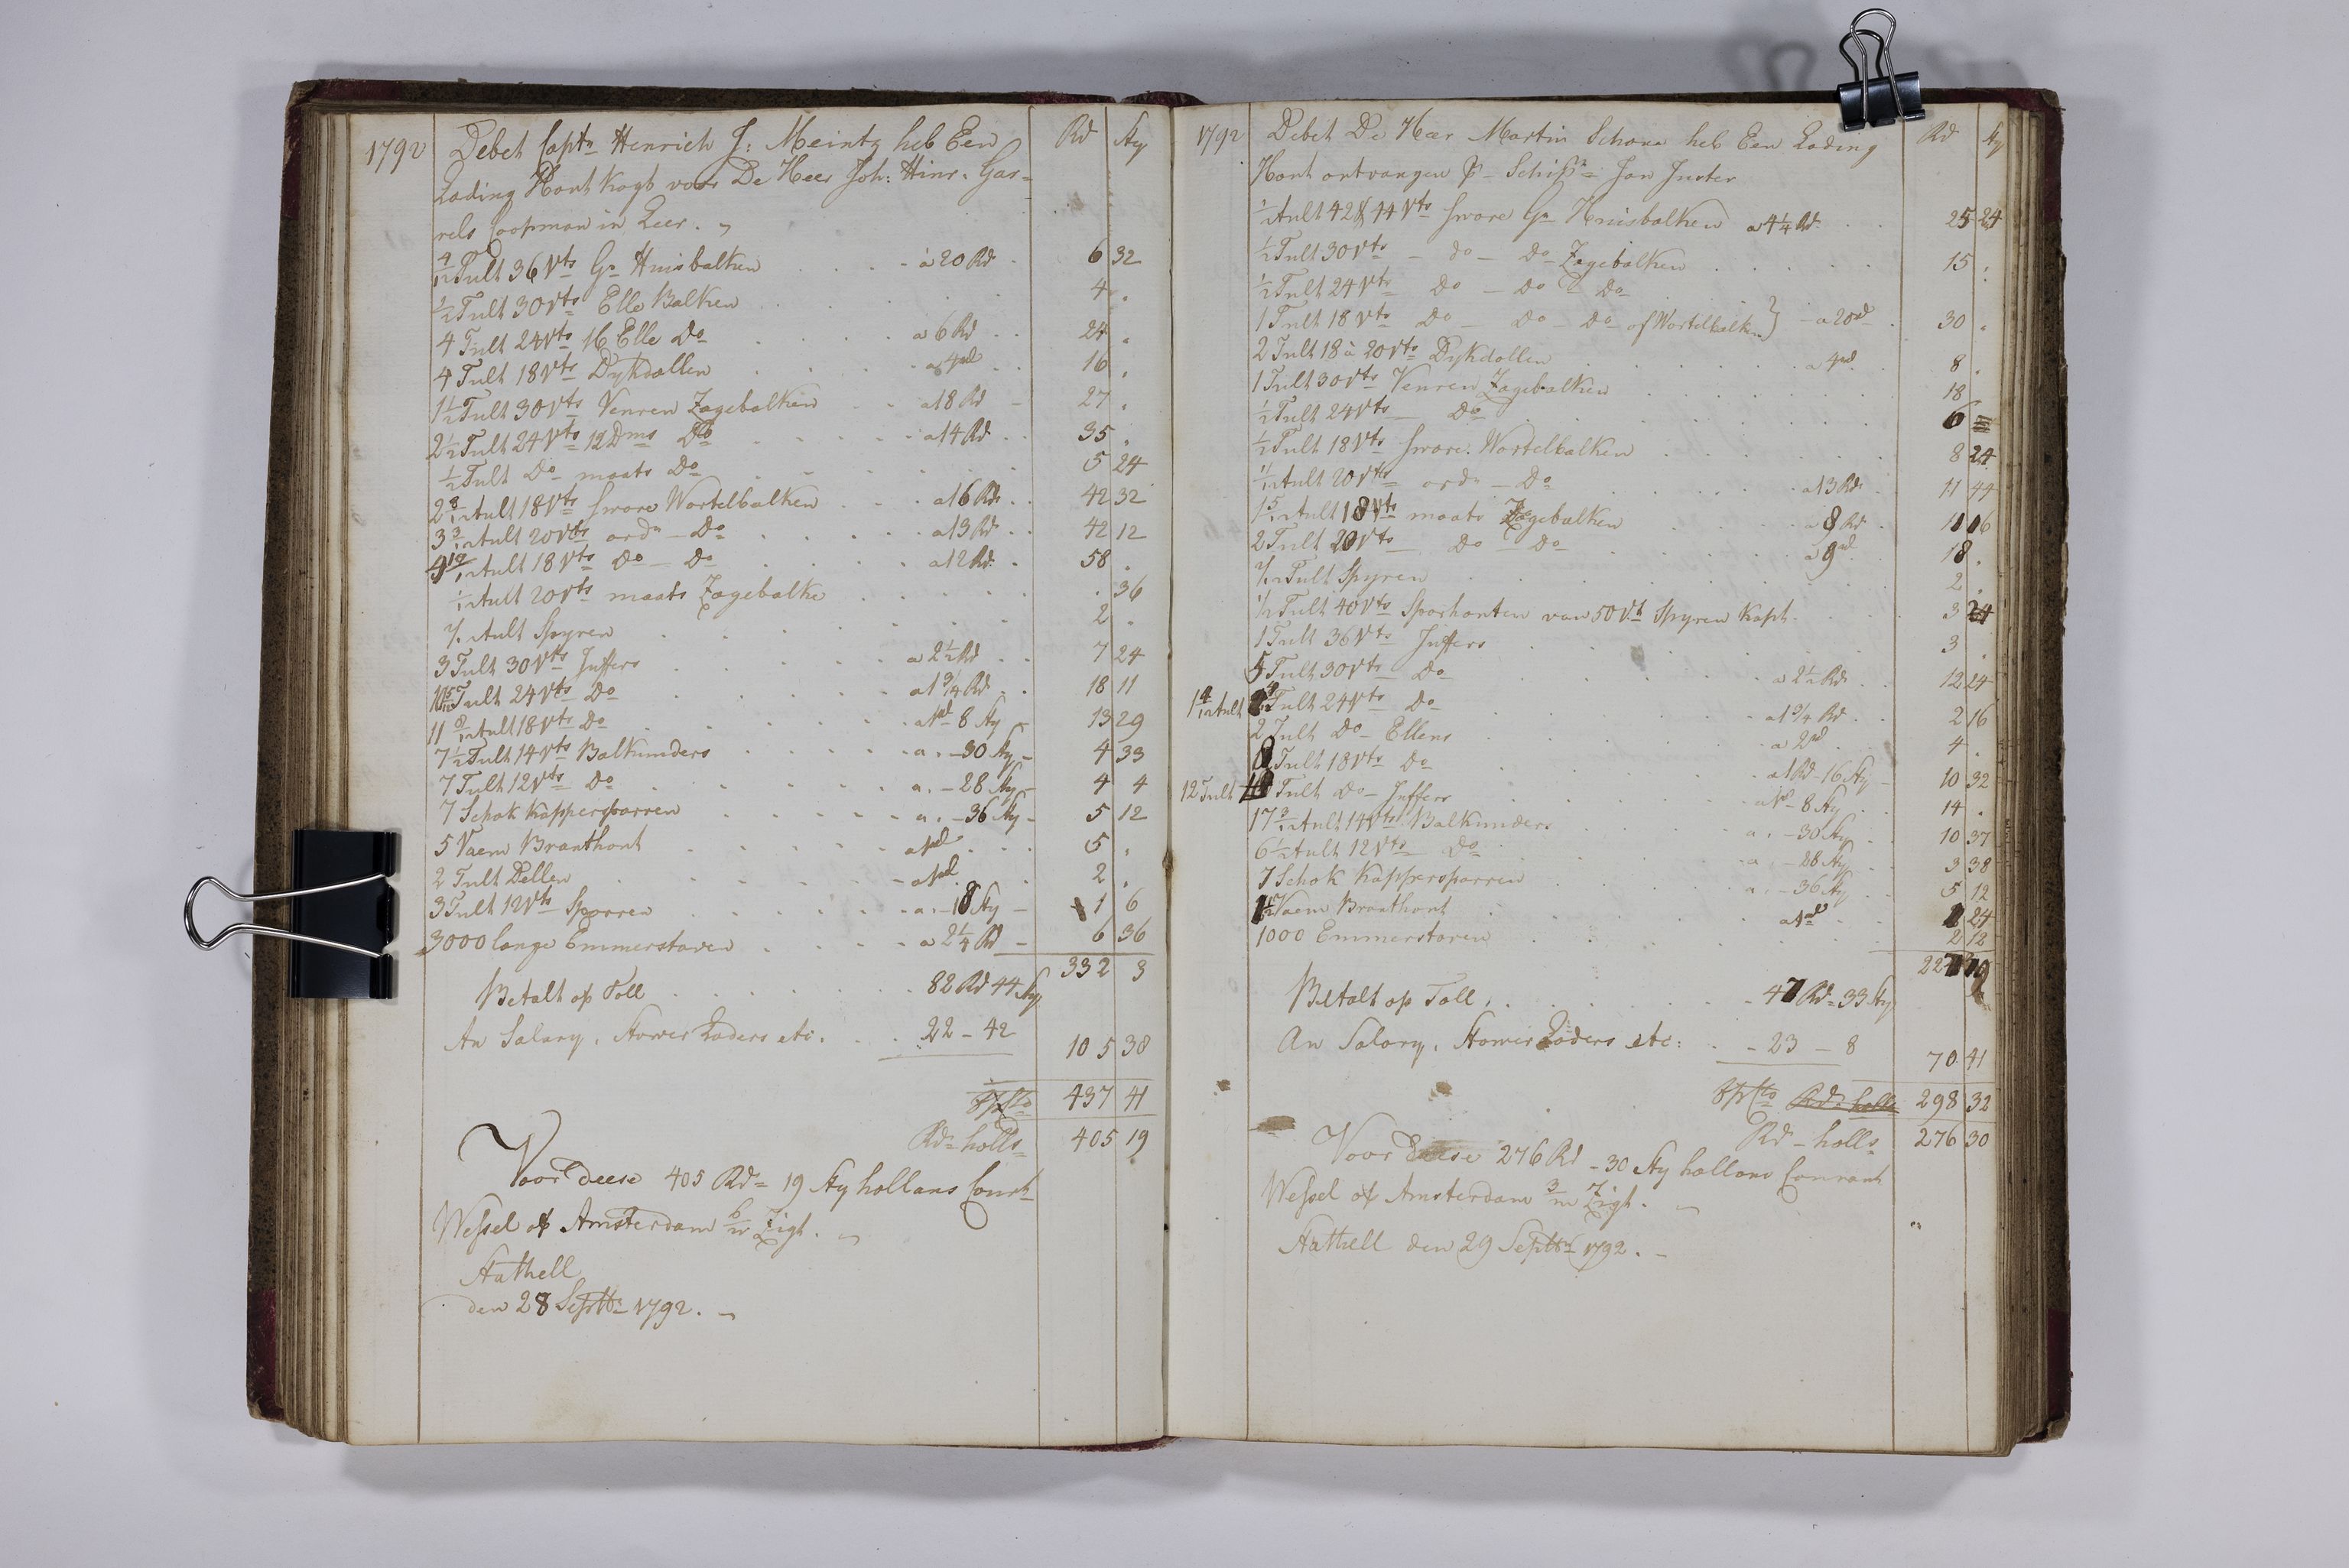 1792 Debet Captn Henrich J: Meintz heb Een Rd Sty
Lading Hout Kogt voor De Heer Joh: Hinr. Gar-
rels Coopman in Leer.
4/12 Tult 36 Vts Gr Huisbalken a 20 Rd 6 32
1/2 Tult 30 Vts Elle Balken 4 .
4 Tult 24 Vts 16 Elle Do a 6 Rd 24 .
4 Tult 18 Vts Dykdallen a 4 Rd 16 .
1 1/2 Tult 30 Vts Venren Zagebalken a 18 Rd 27 .
2 1/2 Tult 24 Vts 12 Dms Do a 14 Rd 35 .
1/2 Tult Do maats Do 5 24
2 8/12 Tult 18 Vts Sware Wortelbalken a 16 Rd 42 32
3 3/12 Tult 20 Vts ordn Do a 13 Rd 42 12
4 10/12 Tult 18 Vts Do Do a 12 Rd 58 .
1/12 Tult 20 Vts maats Zagebalke . 36
Tult Spyren 2 .
3 Tult 30 Vts Juffers a 2 1/2 Rd 7 24
Tult 24 Vts Do a 1 3/4 Rd 18 11
11 8/12 Tult 18 Vts Do a 1 Rd 8 Sty 13 29
7 1/2 Tult 14 Vts Balkunders a . - 30 Sty 4 33
7 Tult 12 Vts Do a . - 28 Sty 4 4
7 Schok Kappersparren a . - 36 Sty 5 12
5 Vaem Branthout a 1 Rd 5 .
2 Tult Dellen a 1 Rd 2 .
3 Tult 12 Vts Sparren a . - 18 Sty 1 6
3000 lange Emmerstaven a 2 1/4 Rd 6 36
332 3
Betalt op Toll 82 Rd 44 Sty
An Salary, Stower Laders etc. 22 - 42 105 38
Spcto 437 41
Rd holls 405 19
Voor deese 405 Rd 19 Sty hollans Court
Wessel op Amsterdam 6/m Zigt.
Stathell
den 28 Septbr 1792.
1792 Debet De Heer Martin Schona heb Een Lading Rd Sty
Hout ontvangen P Schipr Jan Juster
Tult 42 & 44 Vts Sware Gr Huisbalken a 4 1/4 Rd 25 24
1/2 Tult 30 Vts do Do Zagebalken 15 .
1/2 Tult 24 Vts Do Do Do
1 Tult 18 Vts Do Do Do of Wortelbalken } a 20 Rd 30 .
2 Tult 18 a 20 Vts Dykdallen a 4 Rd 8 .
1 Tult 30 Vts Venren Zagebalken 18
1/2 Tult 24 Vts Do 6
1/2 Tult 18 Vts Sware Wortelbalken 8 24
Tult 20 Vts ordn Do a 13 Rd 11 44
1 5/12 Tult 18 Vts maats Zagebalken a 8 Rd 11 16
2 Tult 20 Vts Do Do a 9 Rd 18 .
Tult Spyren 2 .
Tult 40 Vts Sparhouten van 50 Vt Spyren Kapt. 3 24
1 Tult 36 Vts Juffers 3 .
5 Tult 30 Vts Do a 2 1/2 Rd 12 24
1 4/12 Tult Tult 24 Vts Do a 1 3/4 Rd 2 16
2 Tult Do Ellens a 2 Rd 4 .
8 Tult 18 Vts Do a 1 Rd 16 Sty 10 32
12 Tult Tult Do Juffers a 1 Rd 8 Sty 14 .
17 3/12 Tult 14 Vts Balkunders a . - 30 Sty 10 37
6 1/2 Tult 12 Vts Do a - 28 Sty 3 38
7 Schok Kappersparren a . - 36 Sty 5 12
1 1/2 Vaem Branthout a 1 Rd 1 24
1000 Emmerstaven 2 12
Betalt op Toll 47 Rd 33 Sty
An Salary, Stower Laders etc: 23 - 8 70 41
Spcto Rd holls 298 32
Rd holls 276 30
Voor Deese 276 Rd 30 Sty hollans Courant
Wessel op Amsterdam 3/m Zigt.
Stathell den 29 Septbr 1792.